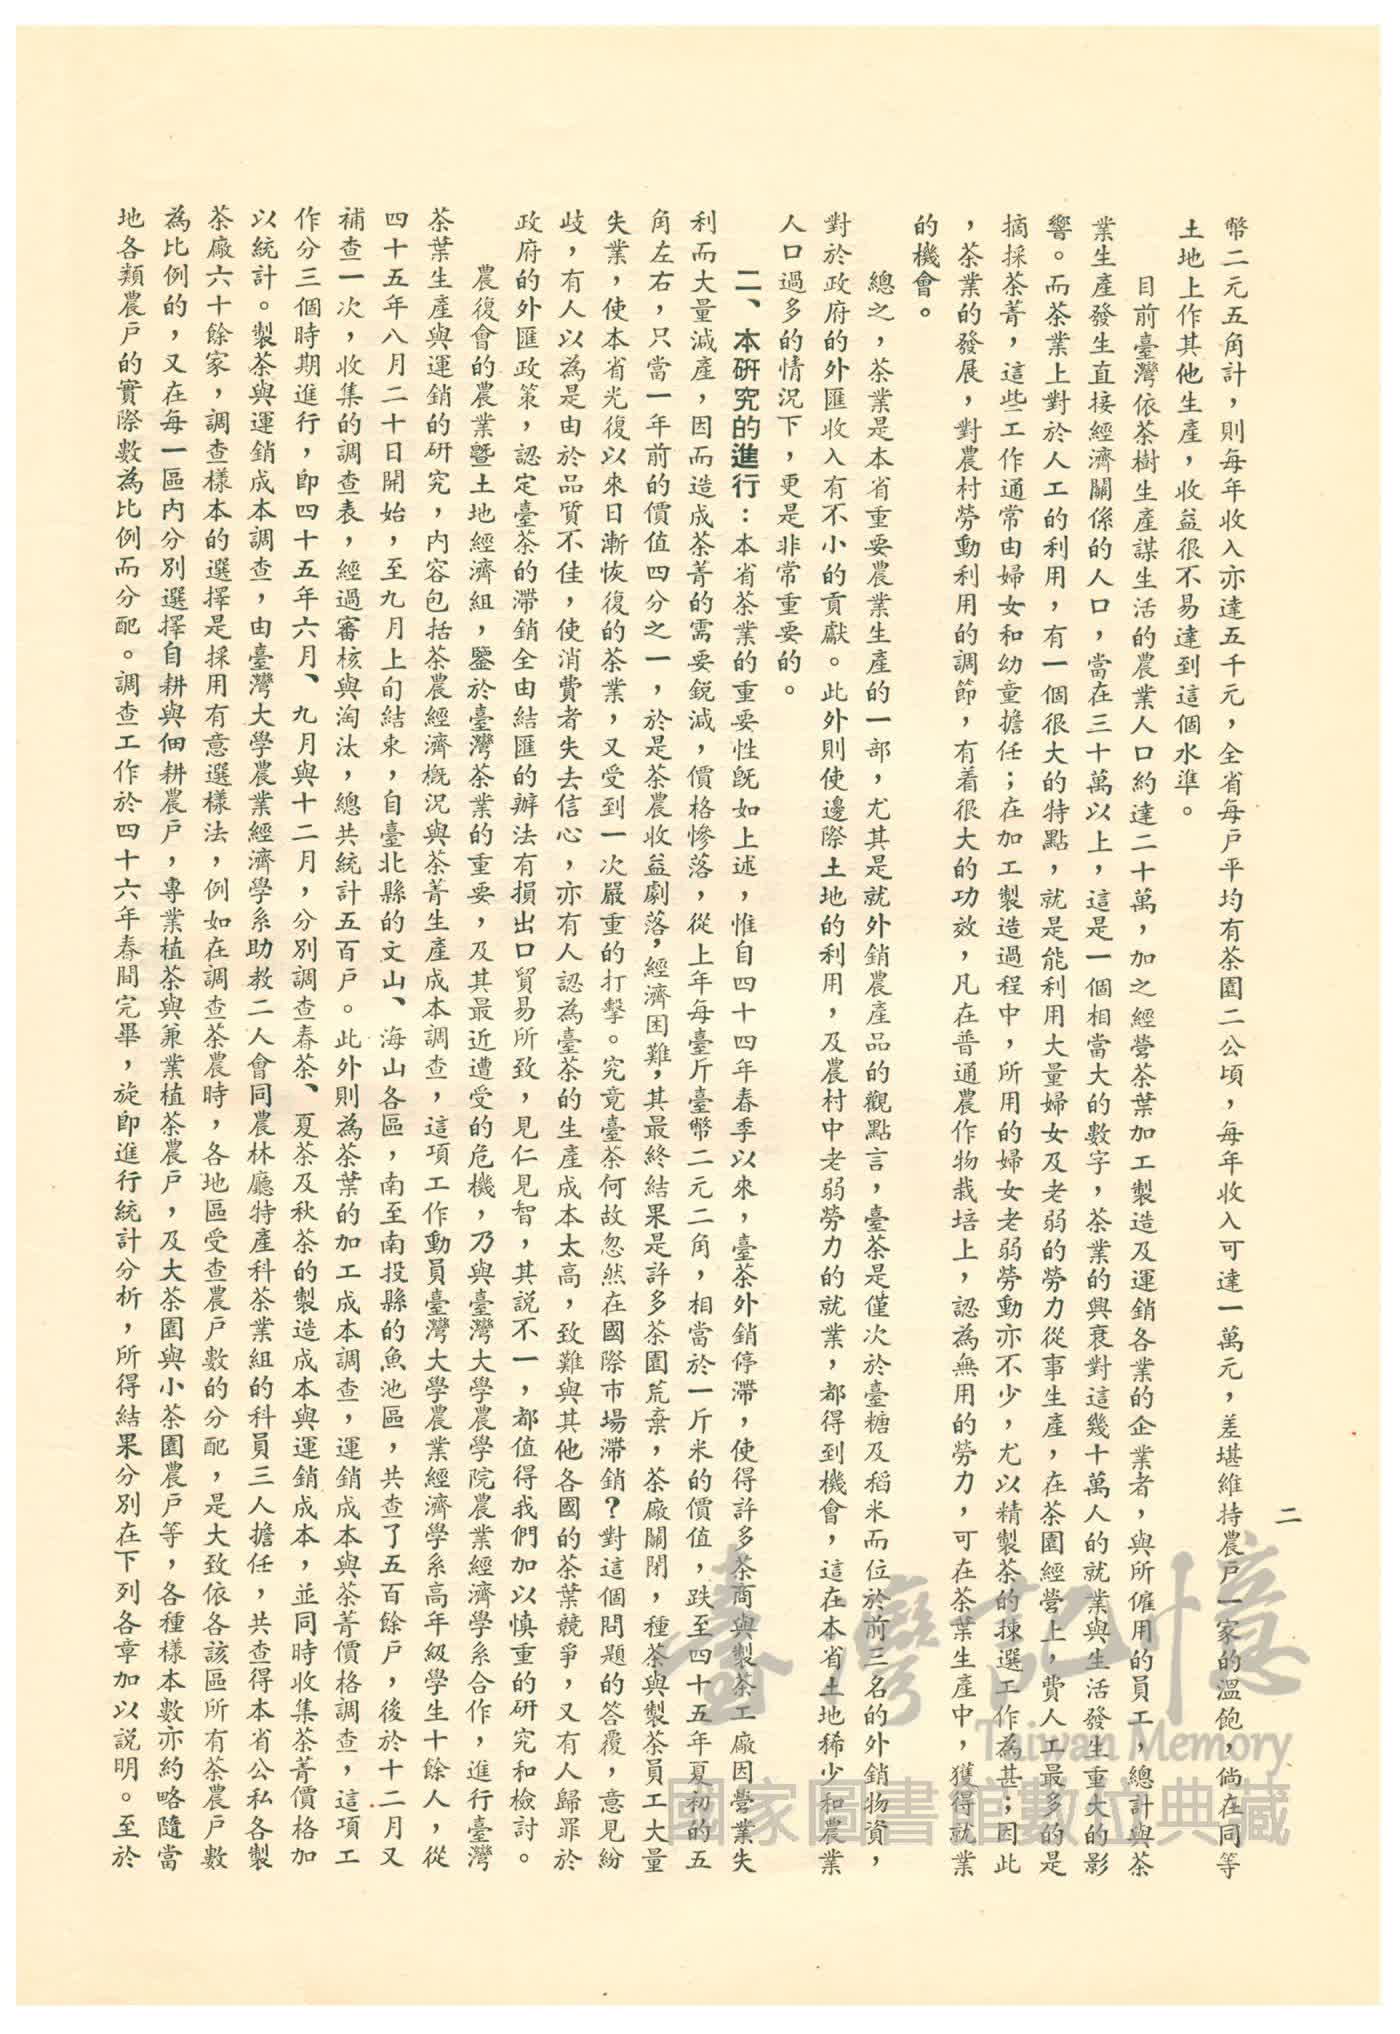 二
幣二元五角計，則每年收入亦達五千元，全省每戶平均有茶園二公頃，每年收入可達一萬元，差堪維持農戶一家的溫飽，倘在同等
土地上作其他生產，收益很不易達到這個水準。
目前臺灣依茶樹生產謀生活的農業人口約達二十萬，加之經營茶葉加工製造及運銷各業的企業者，與所僱用的員工，總計與茶
業生產發生直接經濟關係的人口，當在三十萬以上，這是一個相當大的數字，茶業的興衰對這幾十萬人的就業與生活發生重大的影
響。而茶業上對於人工的利用，有一個很大的特點，就是能利用大量婦女及老弱的勞力從事生產，在茶園經營上，費人工最多的是
摘採茶菁，這些工作通常由婦女和幼童擔任；在加工製造過程中，所用的婦女老弱勞動亦不少，尤以精製茶的揀選工作為甚；因此
，茶業的發展，對農村勞動利用的調節，有着很大的功效，凡在普通農作物栽培上，認為無用的勞力，可在茶葉生產中，獲得就業
的機會。
總之，茶業是本省重要農業生產的一部，尤其是就外銷農產品的觀點言，臺茶是僅次於臺糖及稻米而位於前三名的外銷物資，
對於政府的外匯收入有不小的貢獻。此外則使邊際土地的利用，及農村中老弱勞力的就業，都得到機會，這在本省土地稀少和農業
人口過多的情況下，更是非常重要的。
二、本研究的進行：本省茶業的重要性旣如上述，惟自四十四年春季以來，臺茶外銷停滯，使得許多茶商與製茶工廠因營業失
利而大量減產，因而造成茶菁的需要銳減，價格慘落，從上年每臺斤臺幣二元二角，相當於一斤米的價值，跌至四十五年夏初的五
角左右，只當一年前的價值四分之一，於是茶農收益劇落，經濟困難，其最終結果是許多茶園荒棄，茶廠關閉，種茶與製茶員工大量
失業，使本省光復以來日漸恢復的茶業，又受到一次嚴重的打擊。究竟臺茶何故忽然在國際市場滯銷？對這個問題的答覆，意見紛
歧，有人以為是由於品質不佳，使消費者失去信心，亦有人認為臺茶的生產成本太高，致難與其他各國的茶葉競爭，又有人歸罪於
政府的外匯政策，認定臺茶的滯銷全由結匯的辦法有損出口貿易所致，見仁見智，其說不一，都值得我們加以慎重的研究和檢討。
農復會的農業暨土地經濟組，鑒於臺灣茶業的重要，及其最近遭受的危機，乃與臺灣大學農學院農業經濟學系合作，進行臺灣
茶葉生產與運銷的研究，內容包括茶農經濟概況與茶菁生產成本調查，這項工作動員臺灣大學農業經濟學系高年級學生十餘人，從
四十五年八月二十日開始，至九月上旬結束，自臺北縣的文山、海山各區，南至南投縣的魚池區，共查了五百餘戶，後於十二月又
補查一次，收集的調查表，經過審核與淘汰，總共統計五百戶。此外則為茶葉的加工成本調查，運銷成本與茶菁價格調查，這項工
作分三個時期進行，卽四十五年六月、九月與十二月，分別調查春茶、夏茶及秋茶的製造成本與運銷成本，並同時收集茶菁價格加
以統計。製茶與運銷成本調查，由臺灣大學農業經濟學系助教二人會同農林廳特產科茶業組的科員三人擔任，共查得本省公私各製
茶廠六十餘家，調查樣本的選擇是採用有意選樣法，例如在調查茶農時，各地區受查農戶數的分配，是大致依各該區所有茶農戶數
為比例的，又在每一區內分別選擇自耕與佃耕農戶，專業植茶與兼業植茶農戶，及大茶園與小茶園農戶等，各種樣本數亦約略隨當
地各類農戶的實際數為比例而分配。調查工作於四十六年春間完畢，旋卽進行統計分析，所得結果分別在下列各章加以說明。至於
臺灣記憶
Taiwan Memory
國家圖書館數位典藏